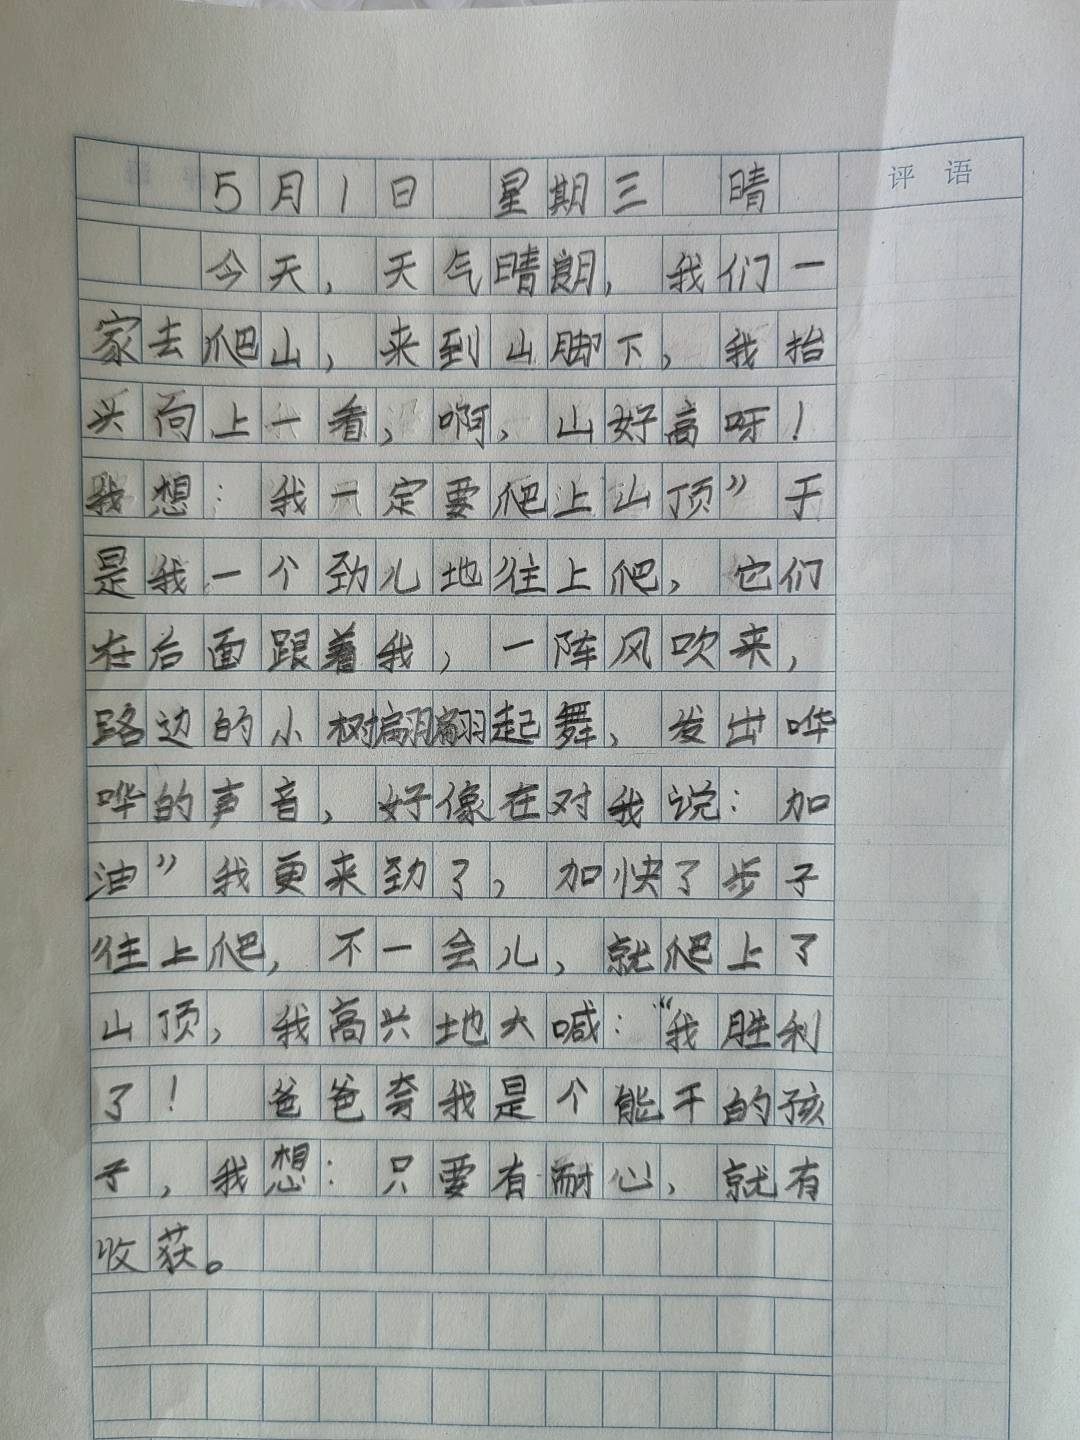 5月1日 星期三 晴
评语
今天,天气晴朗,我们一
家去爬山,来到山脚下,我抬
头向上一看,啊,山好高呀!
我想:我一定要爬上山顶”于
是我一个劲儿地往上爬,它们
在后面跟着我,一阵风吹来,
路边的小树翩翩起舞,发出哗
哗的声音,好像在对我说:加
油”我更来劲了,加快了步子
往上爬,不一会儿,就爬上了
山顶,我高兴地大喊:“我胜利
了! 爸爸夸我是个能干的孩
子,我想:只要有耐心,就有
收获。